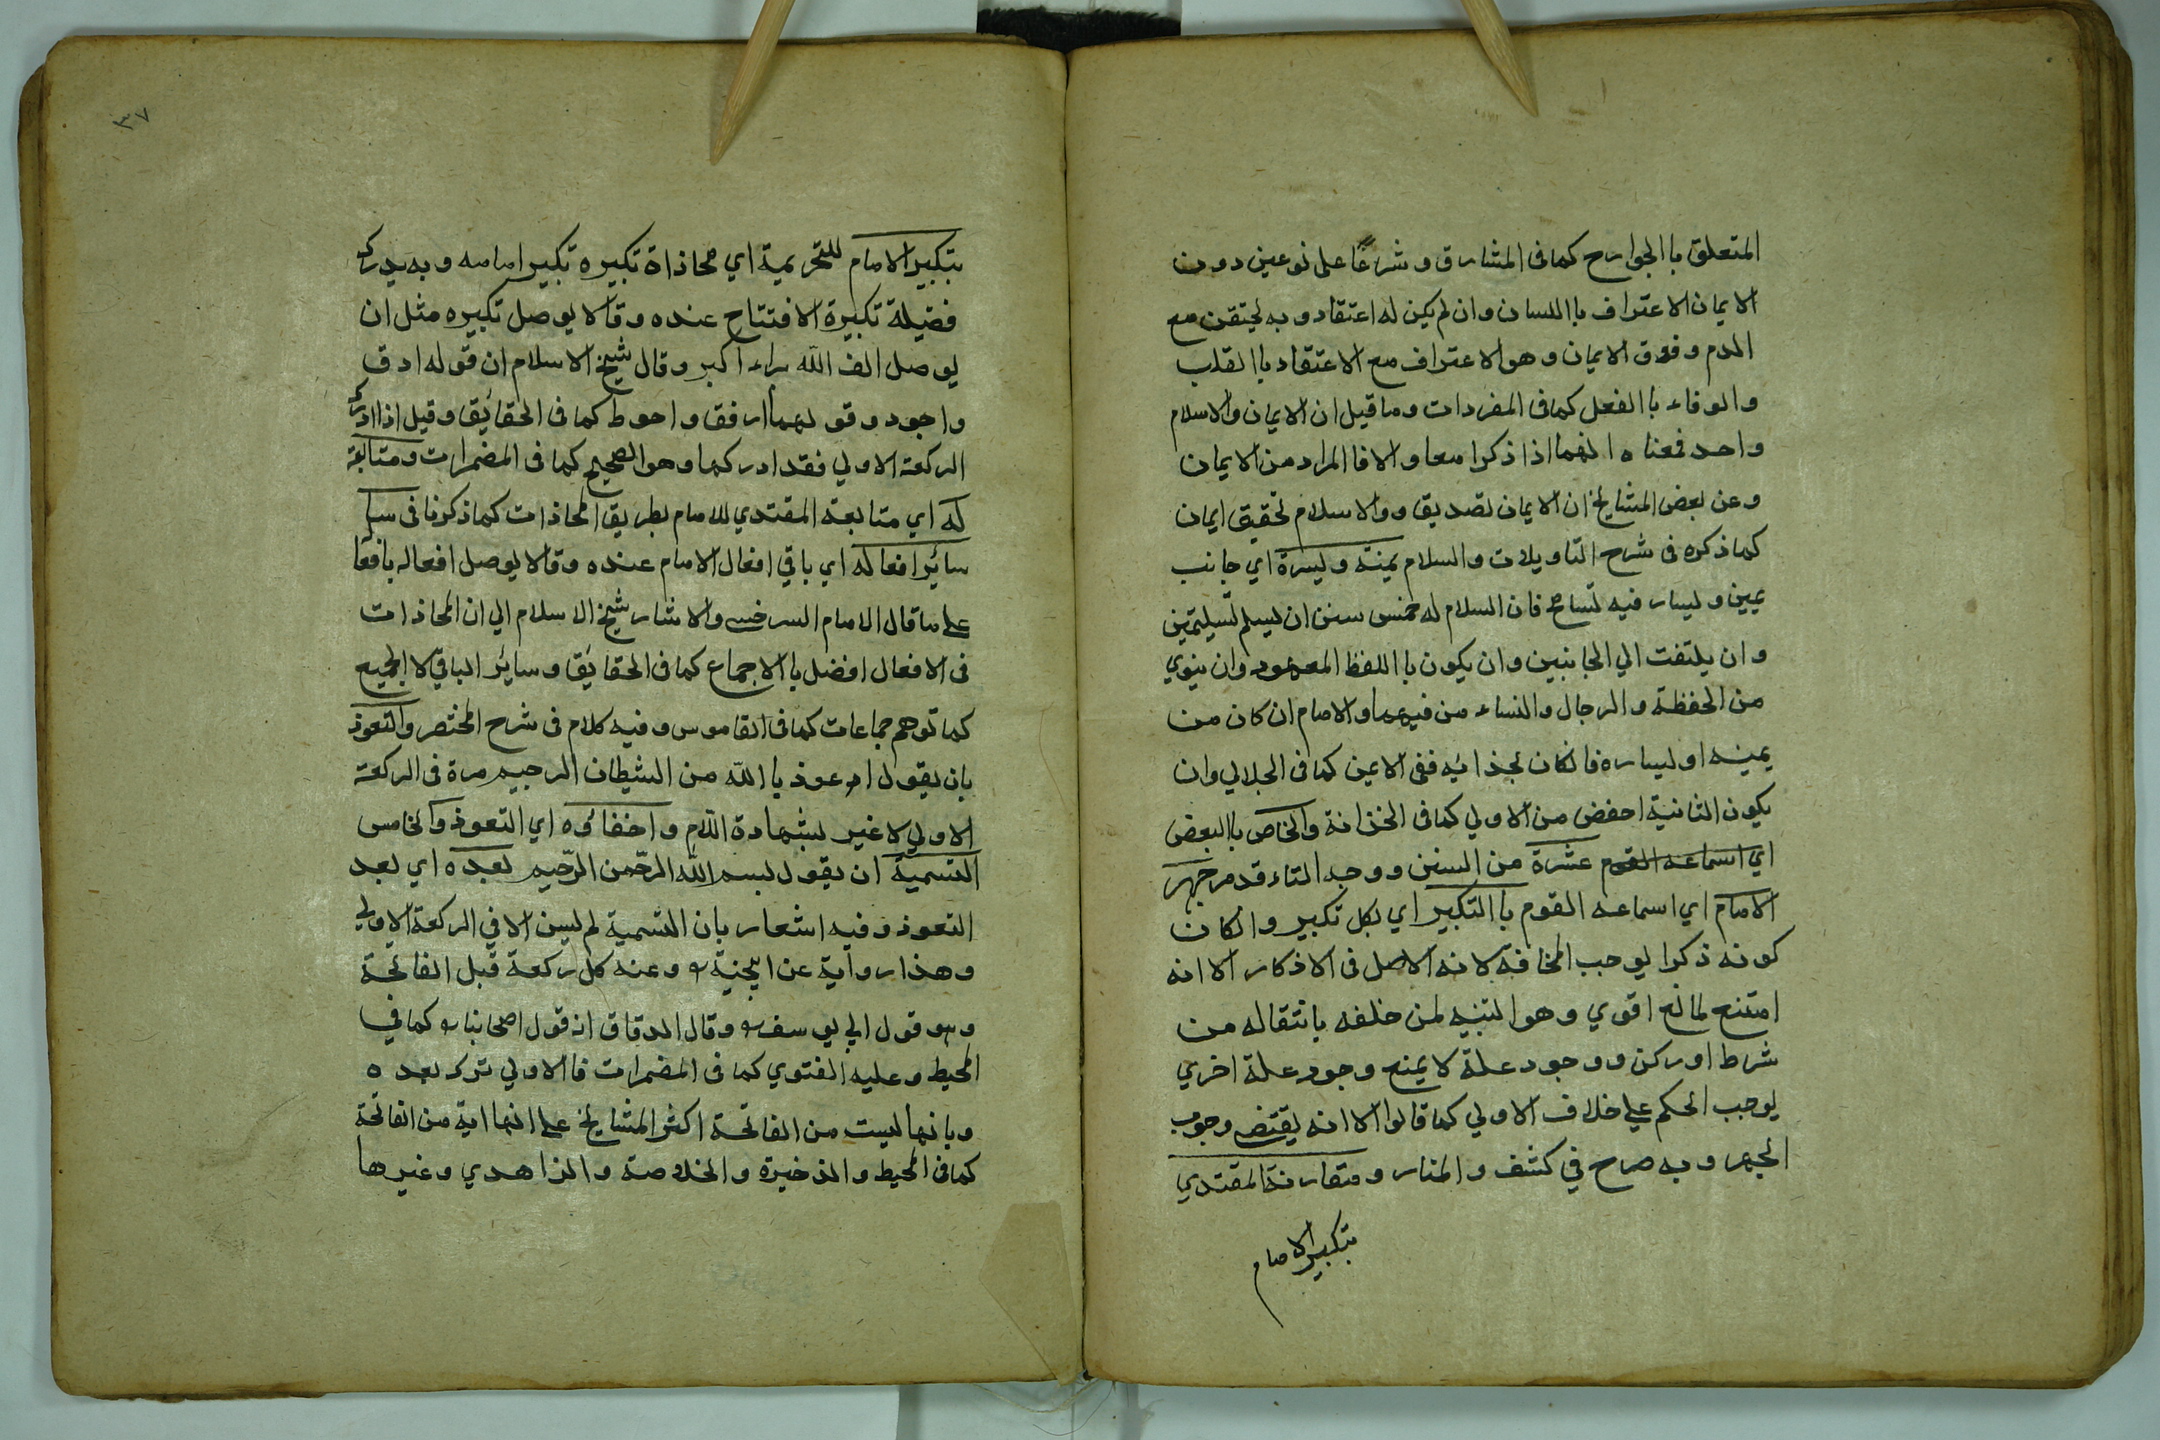 المتعلق با الجوارح كما فى المشارق و شرعًا على نوعين دون
الايمان الاعتراف با اللسان وان لم يكن له اعتقاد و به يحتقن مع
الدم و فوق الايمان و هو الاعتراف مع الاعتقاد با القلب
والوفاء با الفعل كما فى المفردات وما قيل ان الايمان والاسلام
واحد فمعناه انهما اذا ذكرا معا والا فا المراد من الايمان
وعن بعض المشايخ ان الايمان تصديق و والاسلام تحقيق ايمان
كما ذكره فى شرح التاويلات والسلام يمينة و يسرة اي جانب
يمين و ليسار فيه تسامح فان السلام له خمس سنن ان يسلم تسليمتين
وان يلتفت الي الجانبين وان يكون با اللفظ المعهود وان ينوي
من الحفظة والرجال والنساء من فيهما والامام ان كان من
يمينه او ليساره فا لكان بحذائه ففى الايمن كما فى الجلالي وان
يكون الثانية احفض من الاولي كما فى الخزانة والخاص با البعض
اي اسماعه القوم عشرة من السنن و وجه التاء قد مر جهر
الامام اي اسماعه القوم با التكبير اي بكل تكبير و الكان
كونه ذكرا يوجب المخافة لانه الاصل فى الاذكار الا انه
امتنع لمانع اقوي وهو التنبيه لمن خلفه بانتقاله من
شرط او ركن و وجود علة لا يمنع وجود علة اخري
يوجب الحكم علي خلاف الاولي كما قالوا الا انه يقتضى وجوب
الجهر و به صرح في كشف و المنار و مقارنة المقتدي
بتكبير الامام
٣٧
بتكبير الامام للتحريمية اي محاذاة تكبيره تكبير امامه و به يدرك
فضيلة تكبيرة الافتتاح عنده وقالا يوصل تكبيره مثل ان
يوصل الف الله براء اكبر وقال شيخ الاسلام ان قوله ادق
واجود و قولهما ارفق واحوط كما فى الحقايق وقيل اذا ادرك
الركعة الاولي فقد ادركها وهو الصحيح كما فى المضمرات ومتابعة
له اي متابعة المقتدي للامام بطريق المحاذات كما ذكرنا فى سا
سائر افعاله اي باقي افعال الامام عنده وقالا يوصل افعاله بافعا
على ما قال الامام السرخسى والاشار شيخ الاسلام الي ان المحاذات
فى الافعال افضل با الاجماع كما فى الحقايق و سائر الباقي لا الجميع
كما توهم جماعات كما فى القاموس و فيه كلام فى شرح المختصر والتعوذ
بان يقول اعوذ با الله من الشيطان الرجيم مرة فى الركعة
الاولي لا غير لشهادة اللام و اخفائوه اي التعوذ والخامس
التسمية ان يقول بسم الله الرحمن الرحيم بعده اي بعد
التعوذ و فيه اشعار بان التسمية لم يسن الا في الركعة الاولي
و هذا رواية عن و عنه كل ركعة قبل الفاتحة
و هو قول ابي يوسف و قال الدقاق انه قول اصحابنا كما في
المحيط و عليه الفتوي كما فى المضمرات فا الاولي ترك بعده
و بانها ليست من الفاتحة اكثر المشايخ على انها اية من الفاتحة
كما فى المحيط والذخيرة والخلاصة والزاهدي وغيرها